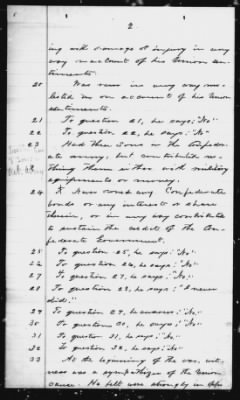 2
ing with damage or injury in any
way on account of his Union sen-
timents.
20 Was never in any way mo-
lested on account of his Union
sentiments.
21 To question 21, he says; "No"
22 To question 22, he says; "No"
23 Had three Sons in the Confeder-
ate army, but contributed no-
thing them either with military
equipments or money.
24 Never owned any Confederate
bonds or any interest or share
therein, or in any way contributed
to sustain the credit of the Con-
federate Government.
25 To question 25, he says; "No"
26 To question 26, he says; "No"
27 To question 27, he says; "No"
28 To question 28, he says; "I never
did."
29 To question 29, he answers; "No"
30 To question 30, he says; "No"
31 To question 31, he says; "No"
32 To question 32, he says; "No"
33 At the beginning of the war, wit-
ness was a sympathizer of the Union
cause. He felt strongly in